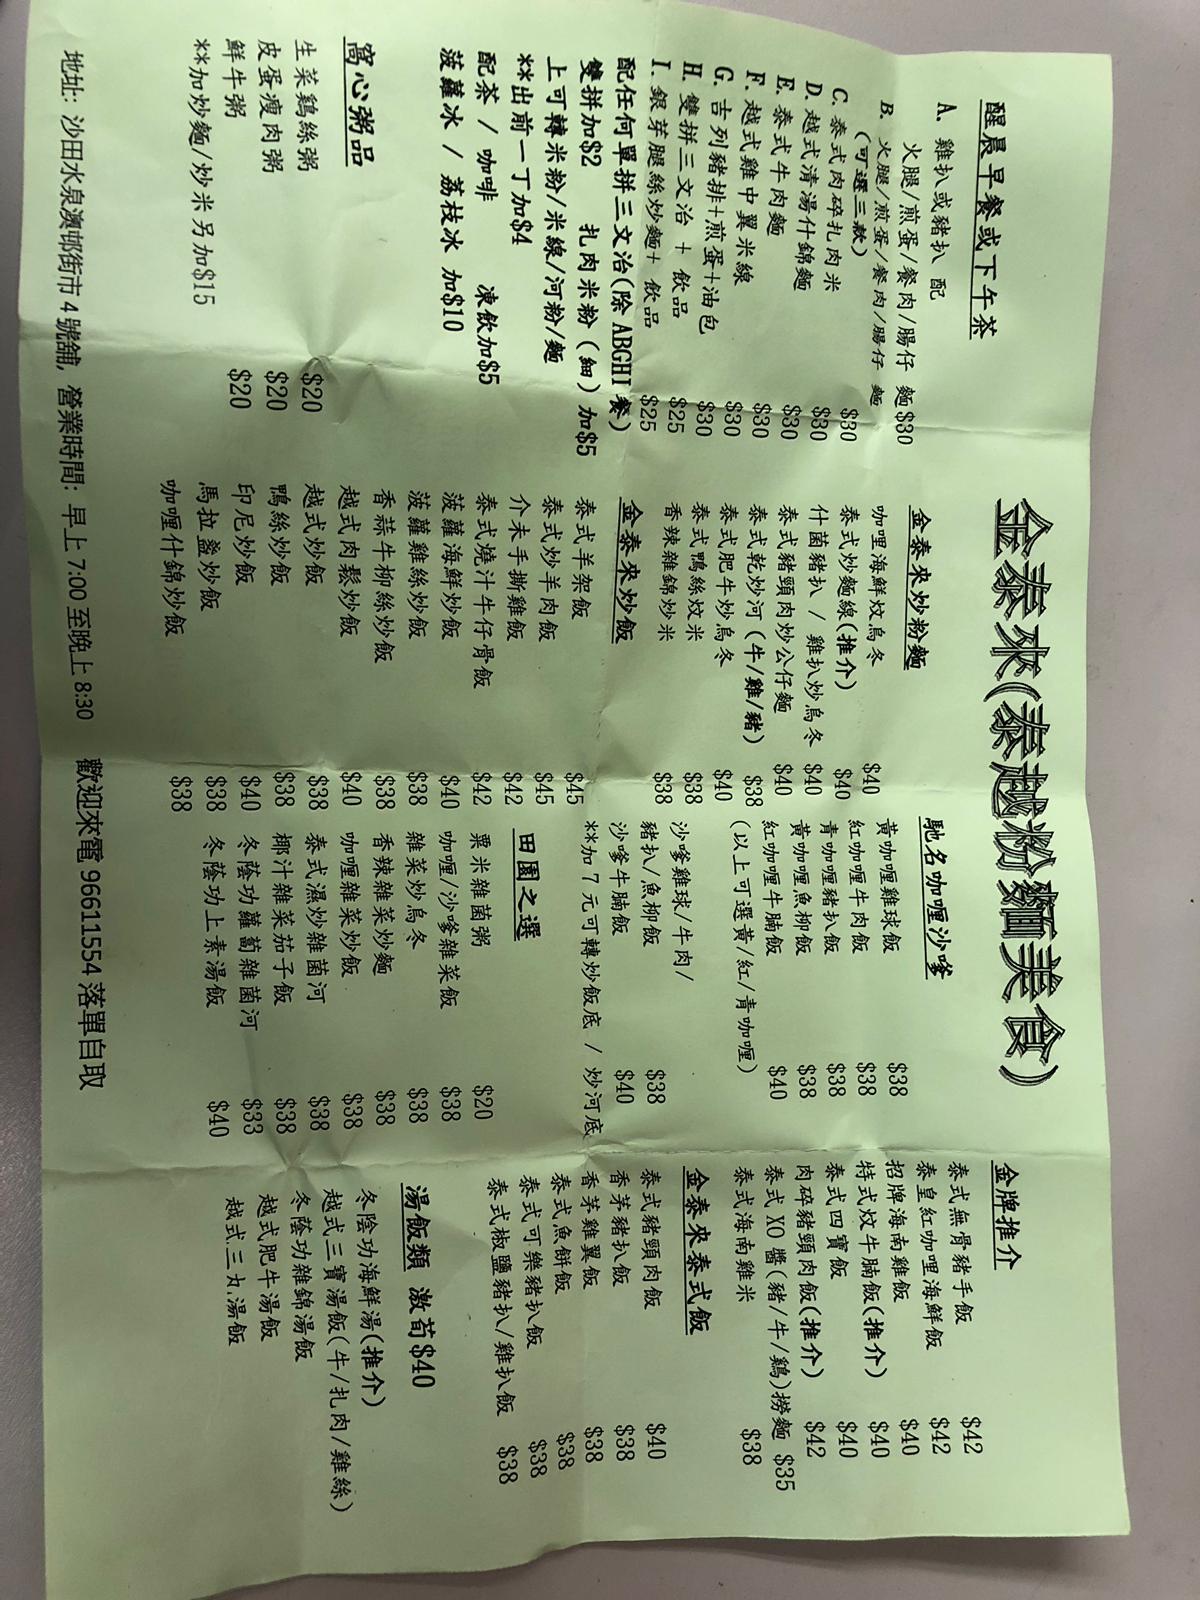 金泰來(泰越粉麵美食)
醒晨早餐或下午茶
A. 雞扒或豬扒 配
火腿/煎蛋/餐肉/腸仔 麵$30
B. 火腿/煎蛋/餐肉/腸仔 麵
(可選三款) $30
C. 泰式肉碎扎肉米 $30
D. 越式清湯什錦麵 $30
E. 泰式牛肉麵 $30
F. 越式雞中翼米線 $30
G. 吉列豬排+煎蛋+油包 $30
H. 雙拼三文治 + 飲品 $25
I. 銀芽腿絲炒麵+ 飲品 $25
配任何單拼三文治(除 ABGHI 餐)
雙拼加$2 扎肉米粉（細）加$5
上可轉米粉/米線/河粉/麵
**出前一丁加$4
配茶 / 咖啡 凍飲加$5
菠蘿冰 / 荔枝冰 加$10
窩心粥品
生菜鷄絲粥 $20
皮蛋瘦肉粥 $20
鮮牛粥 $20
**加炒麵/炒米另加$15
金泰來炒粉麵
咖喱海鮮炆烏冬 $40
泰式炒麵線(推介) $40
什菌豬扒 / 雞扒炒烏冬 $40
泰式豬頸肉炒公仔麵 $40
泰式乾炒河 (牛/雞/豬) $38
泰式肥牛炒烏冬 $40
泰式鴨絲炆米 $38
香辣雜錦炒米 $38
金泰來炒飯
泰式羊架飯 $45
泰式炒羊肉飯 $45
介末手撕雞飯 $42
泰式燒汁牛仔骨飯 $42
菠蘿海鮮炒飯 $40
菠蘿雞絲炒飯 $38
香蒜牛柳絲炒飯 $38
越式肉鬆炒飯 $40
越式炒飯 $38
鴨絲炒飯 $38
印尼炒飯 $40
馬拉盞炒飯 $38
咖喱什錦炒飯 $38
馳名咖喱沙嗲
黃咖喱雞球飯 $38
紅咖喱牛肉飯 $38
青咖喱豬扒飯 $38
黃咖喱魚柳飯 $38
紅咖喱牛腩飯 $40
(以上可選黃/紅/青咖喱)
沙嗲雞球/牛肉/
豬扒/魚柳飯 $38
沙嗲牛腩飯 $40
**加 7 元可轉炒飯底 / 炒河底
田園之選
粟米雜菌粥 $20
咖喱/沙嗲雜菜飯 $38
雜菜炒烏冬 $38
香辣雜菜炒麵 $38
咖喱雜菜炒飯 $38
泰式濕炒雜菌河 $38
椰汁雜菜茄子飯 $38
冬蔭功蘿蔔雜菌河 $33
冬蔭功上素湯飯 $40
金牌推介
泰式無骨豬手飯 $42
泰皇紅咖喱海鮮飯 $42
招牌海南雞飯 $40
特式炆牛腩飯(推介) $40
泰式四寶飯 $40
肉碎豬頸肉飯(推介) $42
泰式 XO 醬(豬/牛/鷄)撈麵 $35
泰式海南雞米 $38
金泰來泰式飯
泰式豬頸肉飯 $40
香茅豬扒飯 $38
香芽雞翼飯 $38
泰式魚餅飯 $38
泰式可樂豬扒飯 $38
泰式椒鹽豬扒/雞扒飯 $38
湯飯類 激荀$40
冬陰功海鮮湯(推介)
越式三寶湯飯(牛/扎肉/雞絲)
冬蔭功雜錦湯飯
越式肥牛湯飯
越式三丸湯飯
地址: 沙田水泉澳邨街市 4 號舖, 營業時間: 早上 7:00 至晚上 8:30 歡迎來電 96611554 落單自取